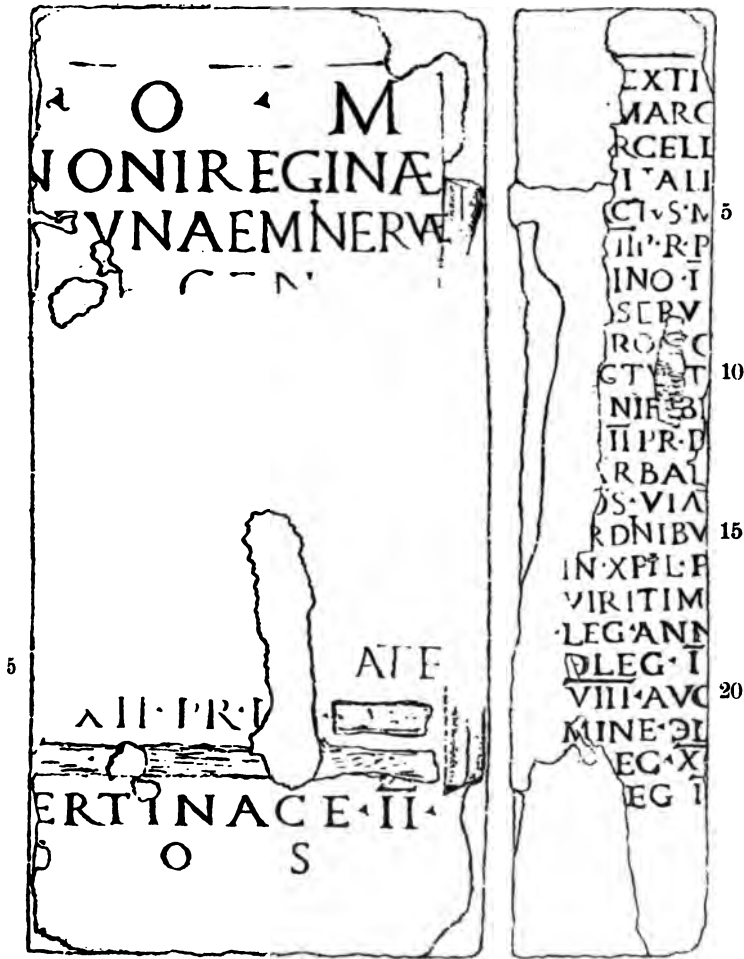 O · M
NONIREGINÆ
VNAEMINERVÆ
ATE
XII·PR·
ERTINACE·II·
O S
5
EXTI
MARC
RCELL
I·ALI
CIVS·M
III·R·P
INO·I
SERV
RO C
GTV T
NIF BI
II PR·D
RBAL
OS·VIA
RDNIBV
IN·XPIL·P
VIRITIM
·LEG·ANN
DLEG·I
VIII·AVG
MINE·
EG·X
EG I
5
10
15
20